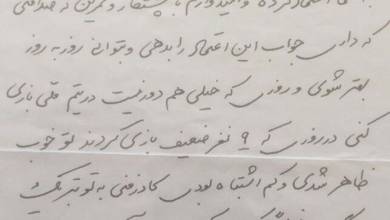 اعتماد کرده و امیدوارم با پشتکار و تمرین که صداقتی
که داری جواب این اعتماد را بدهی و بتوانی روز به روز
بهتر شوی و روزی که خیلی هم دور نیست در تیم ملی بازی
کنی در روزی که ۹ نفر ضعیف بازی کردند تو خوب
ظاهر شدی و کم اشتباه بودی کادرفنی به تو تبریک